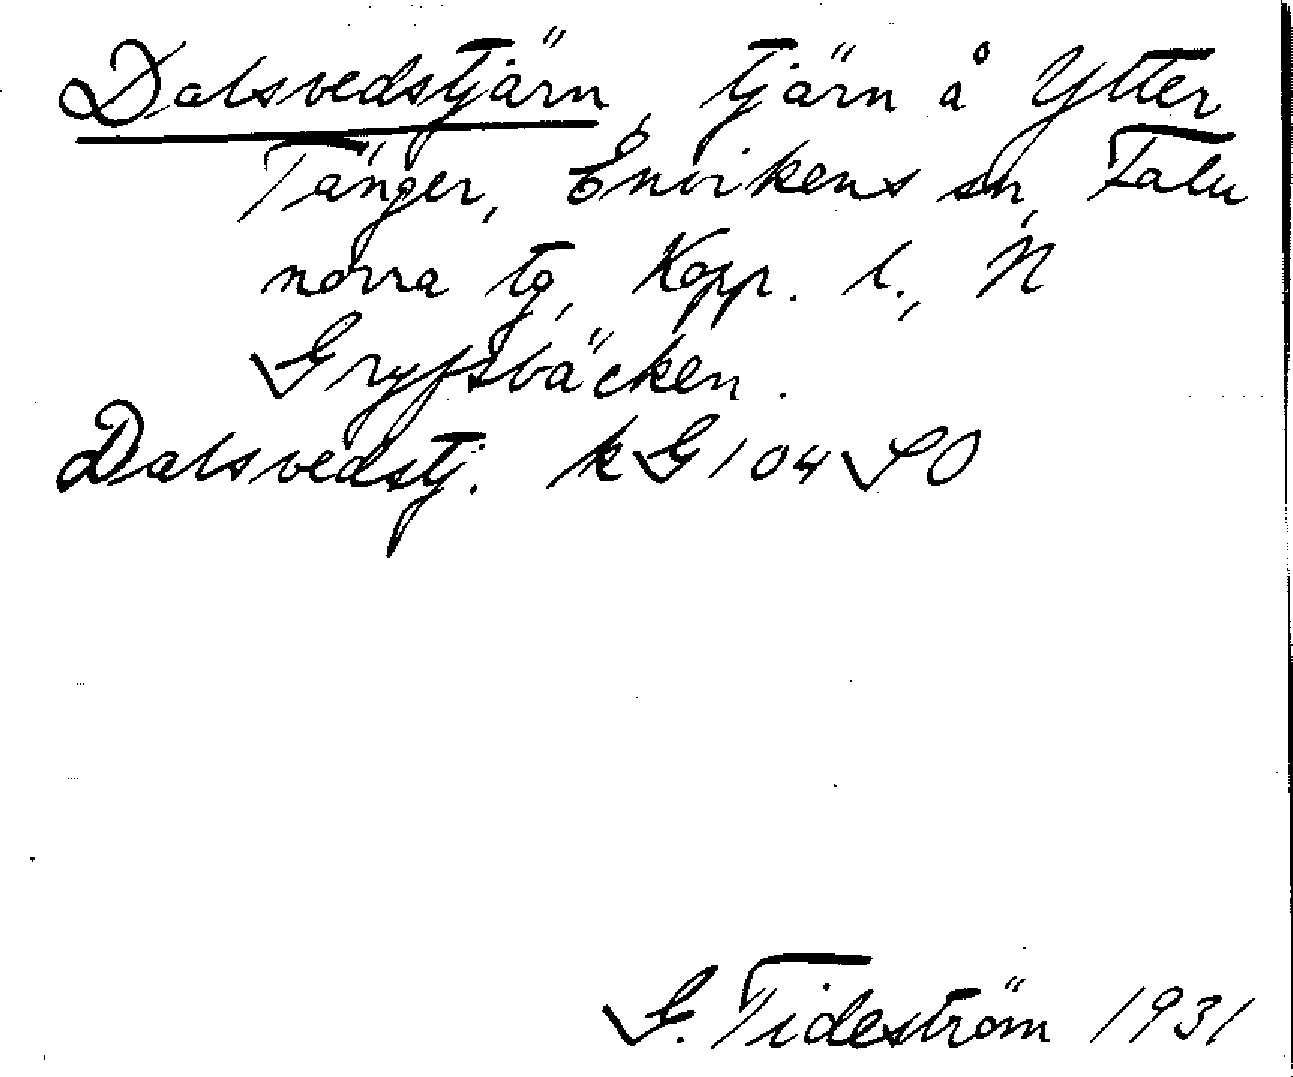 Dalsvedstjärn, tjärn å Ytter
Tänger, Envikens sn, Falu
norra tg, Kopp. l., N
Gryfsbäcken.
Dalsvedstj. k G 104 SO
G. Tideström 1931